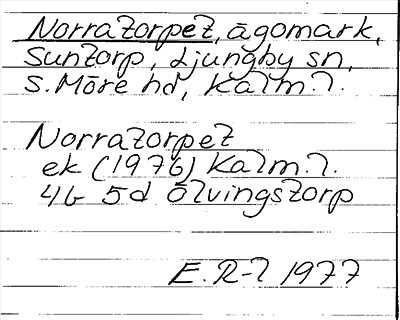 Norratorpet, ägomark,
Suntorp, Ljungby sn,
S. Möre hd, Kalm. l.
Norratorpet
ek (1976) Kalm. l.
4G 5d Ölvingstorp
E. R-l 1977